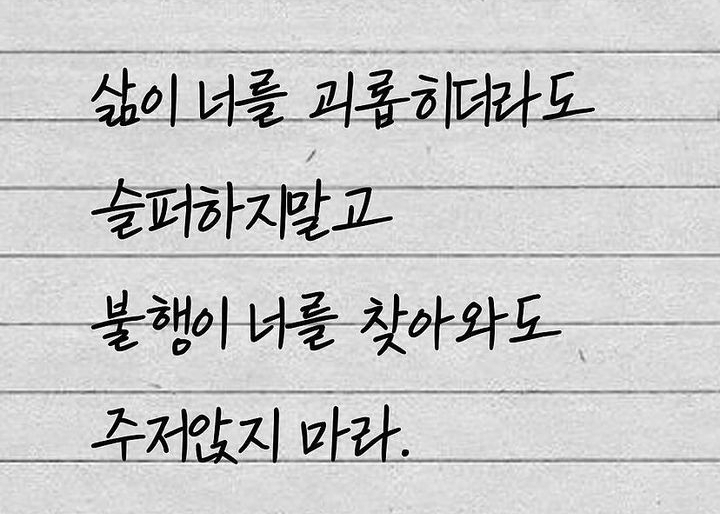 삶이 너를 괴롭히더라도
슬퍼하지말고
불행이 너를 찾아와도
주저앉지 마라.